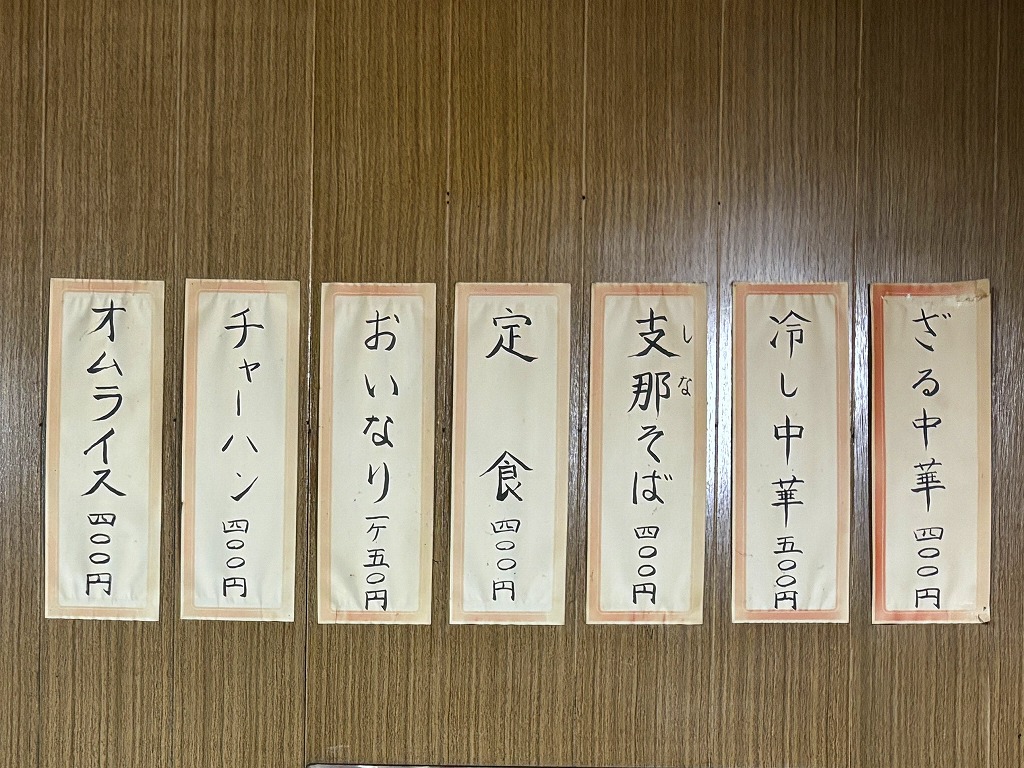 ざる中華 四〇〇円
冷し中華 五〇〇円
支那そば 四〇〇円
しな
定食 四〇〇円
おいなり 一ケ五〇円
チャーハン 四〇〇円
オムライス 四〇〇円